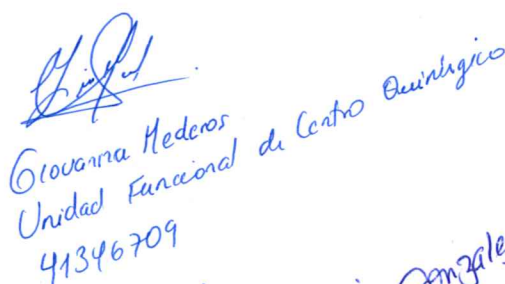 Giovanna Mederos
Unidad Funcional de Centro Quirúrgico
41346709
Gonzales